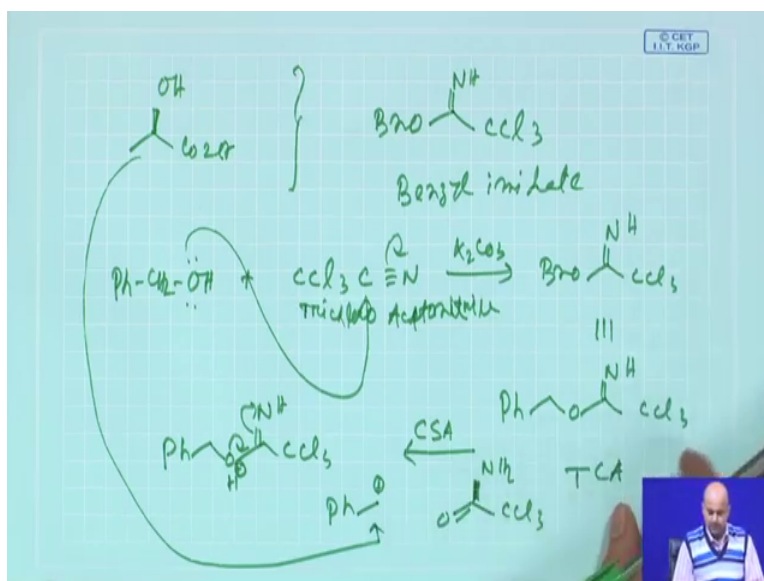 © CET
I.I.T. KGP
OH
NH
BnO
CCl3
CO2R
Benzyl imidate
Ph-CH2-OH + CCl3 C≡N
K2CO3
NH
BnO
CCl3
Trichloro Acetonitrile
|||
NH
Ph O CCl3
NH
Ph O CCl3
H
⊕
CSA
NH2
O CCl3
TCA
Ph ⊕